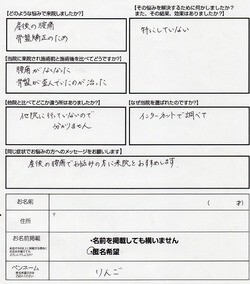 【どのような悩みで来院しましたか?】
産後の腰痛
骨盤矯正のため
【その悩みを解決するために何かしましたか?
また、その結果、効果はありましたか?】
特にしていない
【当院に来院され施術前と施術後を比べてどうですか?】
腰痛がなくなった
骨盤が歪んでいたのが治った
【他院と比べてどこか違う所はありましたか?】
他院に行っていないので
分かりません
【なぜ当院を選ばれたのですか?】
インターネットで調べて
【同じ症状でお悩みの方へのメッセージをお願いします】
産後の腰痛でお悩みの方に来院をお勧めします
お名前
( 才)
ご住所
〒
お名前掲載
・名前を掲載しても構いません
・匿名希望
ペンネーム
りんご